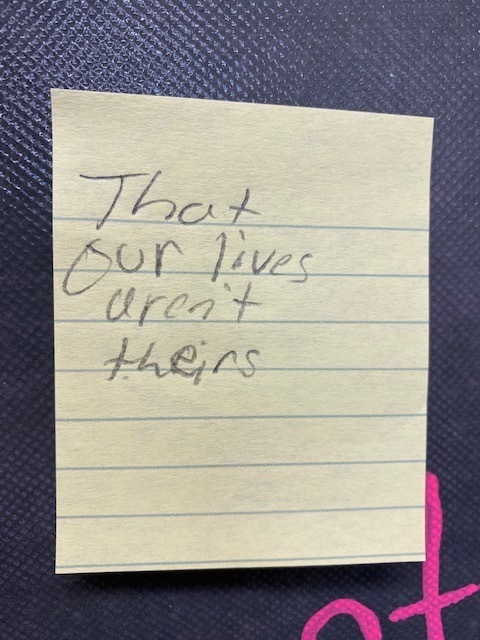 That
our lives
aren't
theirs
ot